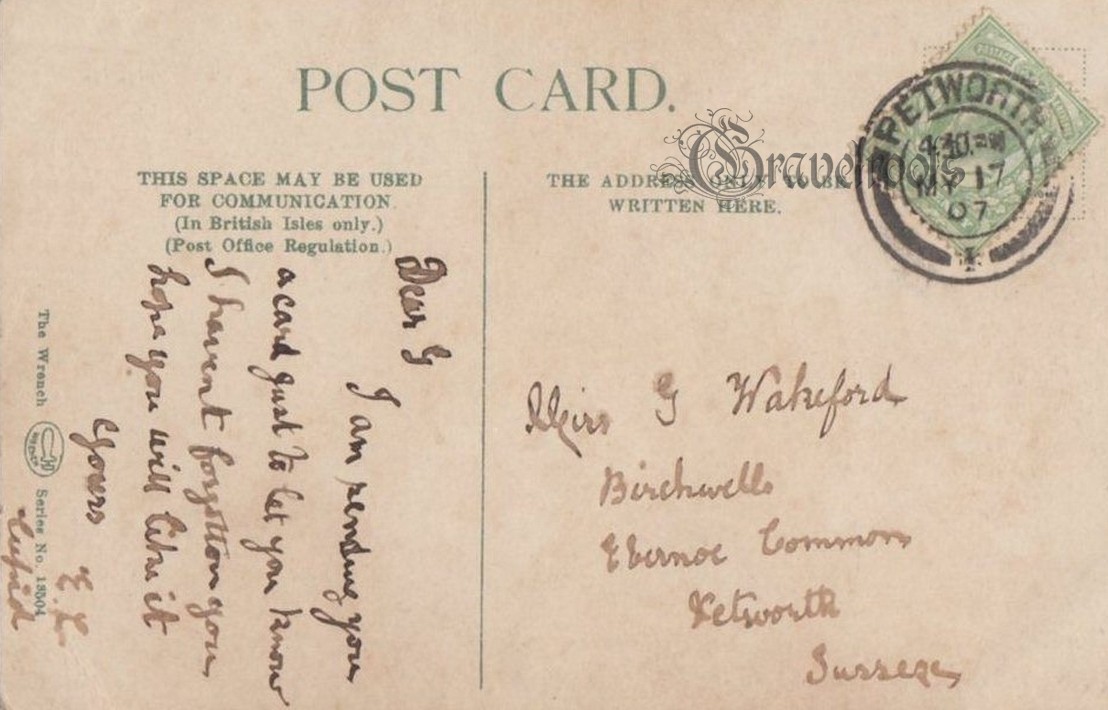 POST CARD.
THIS SPACE MAY BE USED
FOR COMMUNICATION.
(In British Isles only.)
(Post Office Regulation.)
THE ADDRESS ONLY TO BE
WRITTEN HERE.
Gravelroots
PETWORTH
4.30 PM
MY 17
07
1
POSTAGE
Dear G
I am sending you
a card just to let you know
I havent forgotton you,
hope you will like it
Yours
E. L.
Cupid
Miss G Wakeford
Birchwells
Ebernoe Common
Petworth
Sussex,
The Wrench Series No. 13504
WRENCH